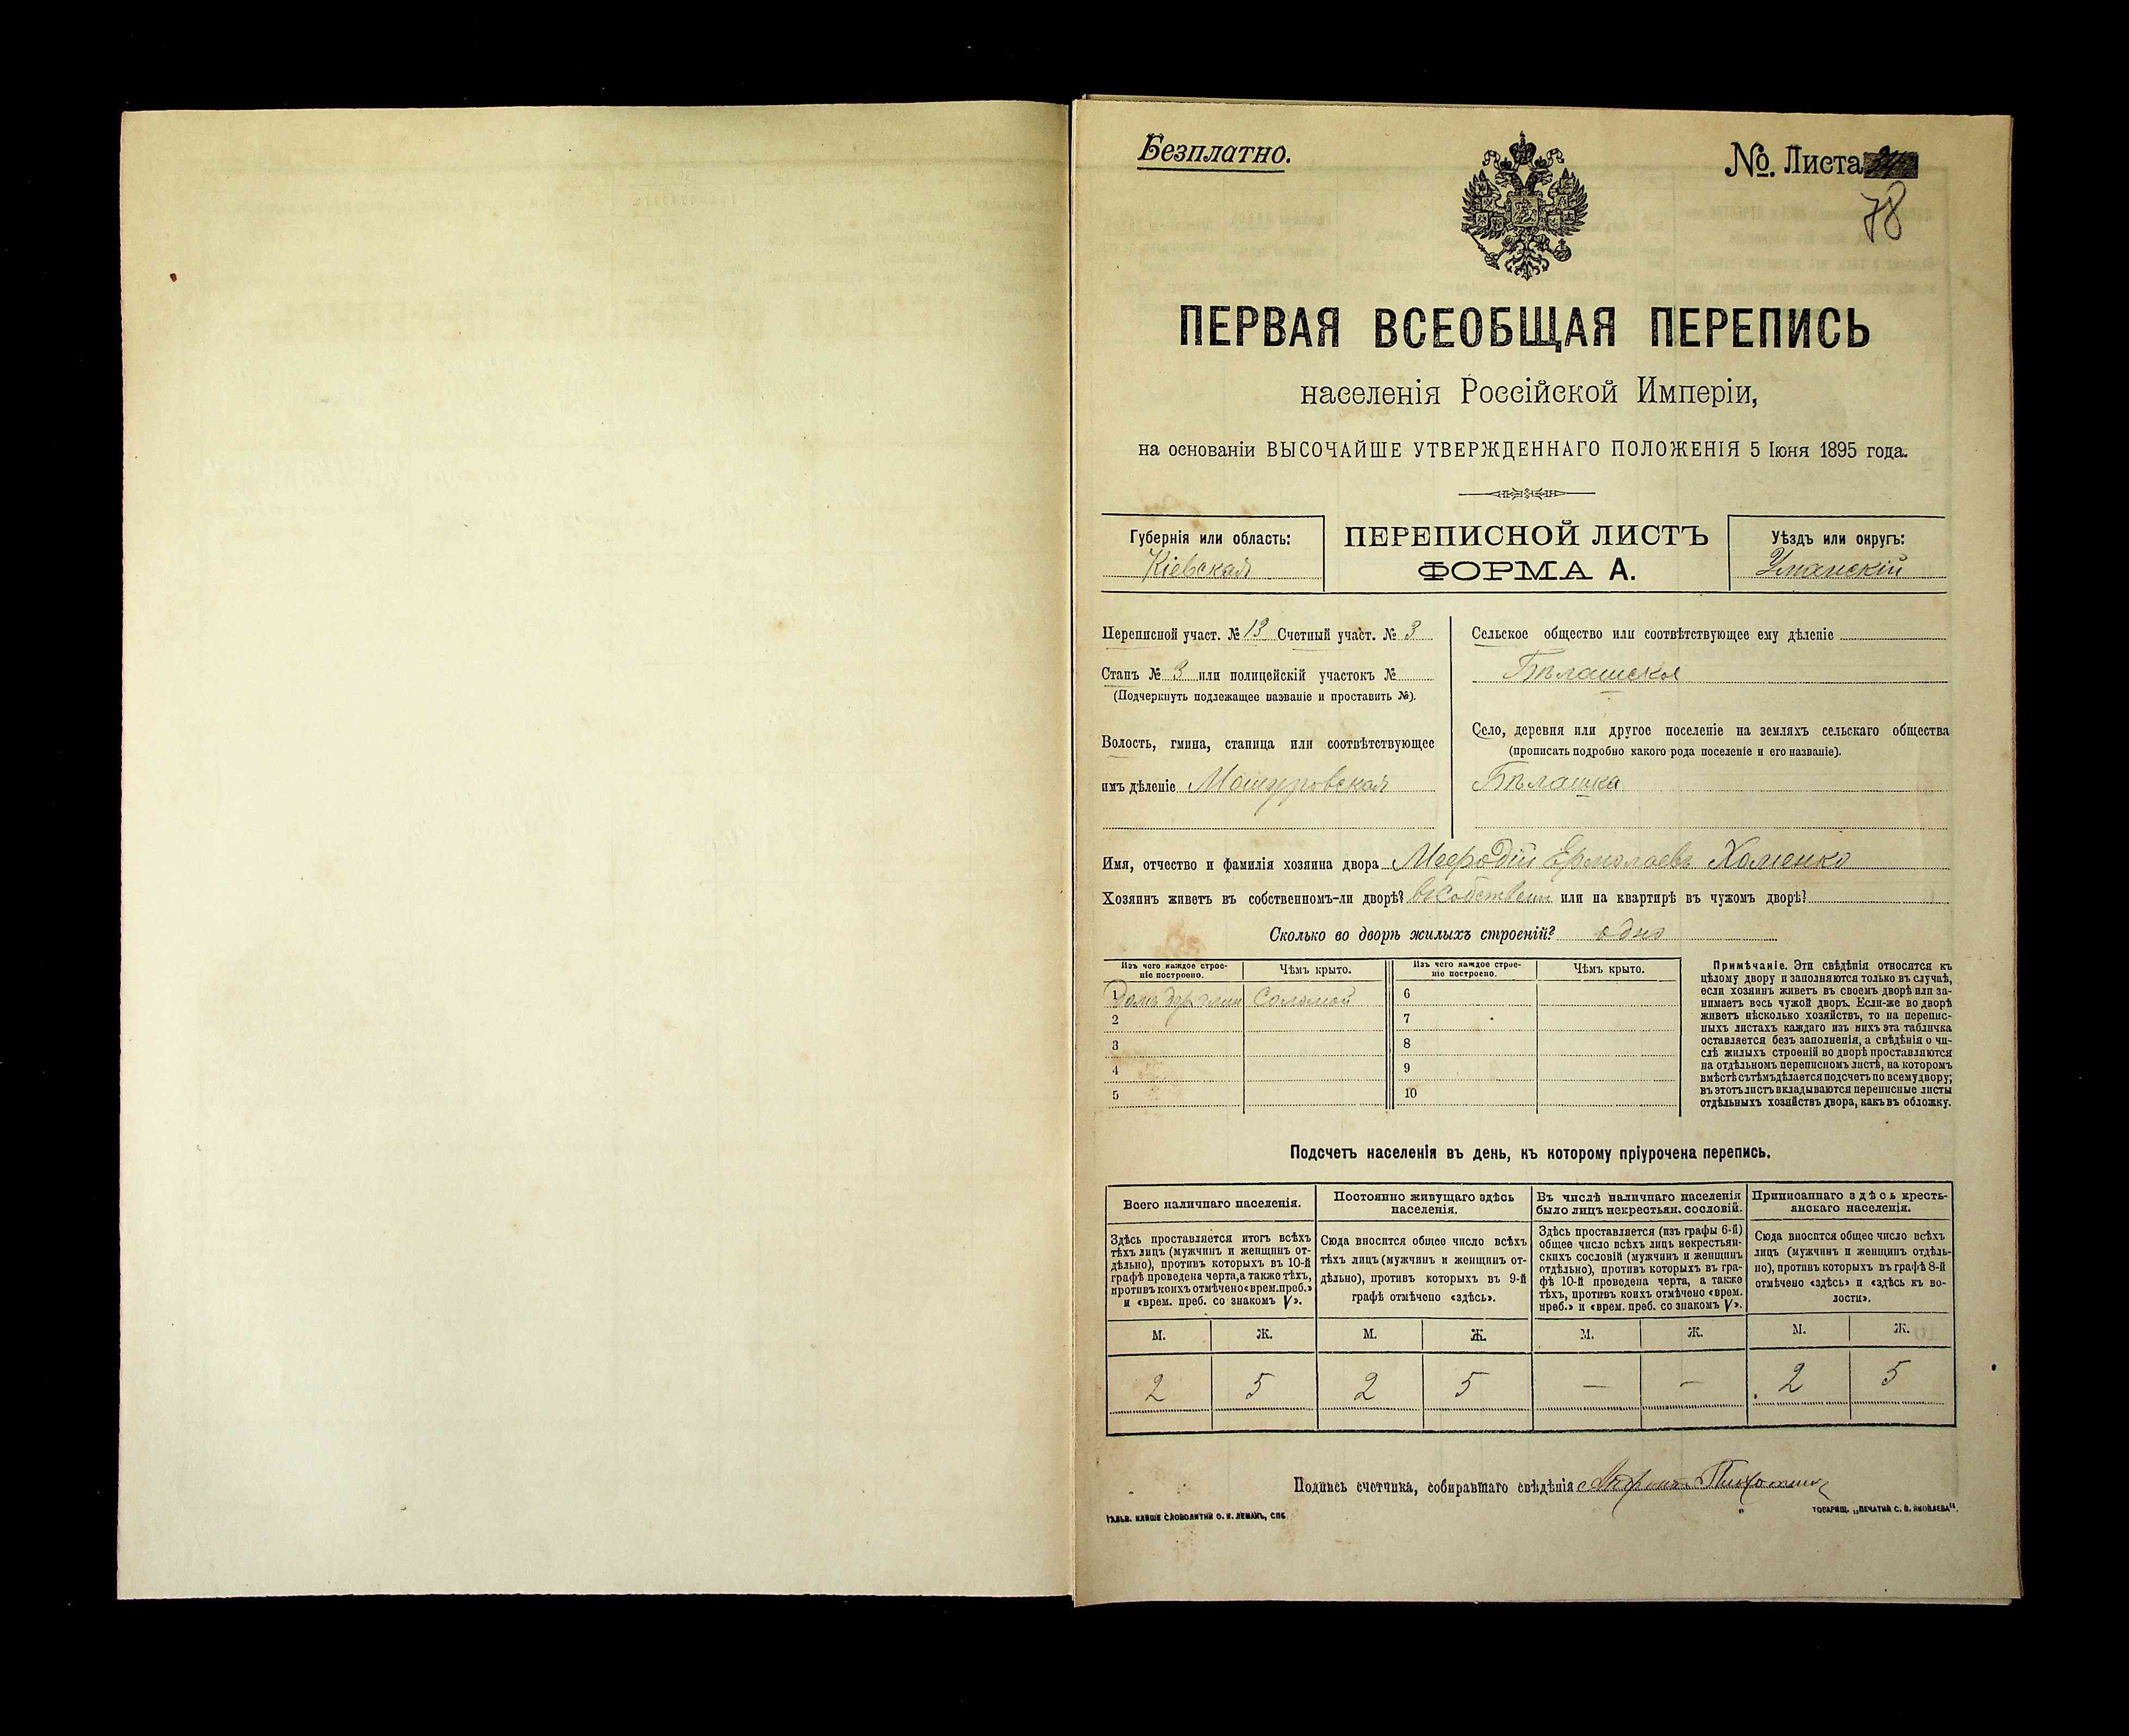 Безплатно.
№. Листа
78
ПЕРВАЯ ВСЕОБЩАЯ ПЕРЕПИСЬ
населенія Россійской Имперіи,
на основаніи ВЫСОЧАЙШЕ УТВЕРЖДЕННАГО ПОЛОЖЕНІЯ 5 Іюня 1895 года.
Губернія или область:
Кіевская
ПЕРЕПИСНОЙ ЛИСТЪ
ФОРМА А.
Уѣздъ или округъ:
Уманскій
Переписной участ. № 13 Счетный участ. № 3
Станъ № 3 или полицейскій участокъ №
(Подчеркнуть подлежащее названіе и проставить №).
Волость, гмина, станица или соотвѣтствующее
имъ дѣленіе Машуровская
Сельское общество или соотвѣтствующее ему дѣленіе
Бѣлашская
Село, деревня или другое поселеніе на земляхъ сельскаго общества
(прописать подробно какого рода поселеніе и его названіе).
Бѣлашка
Имя, отчество и фамилія хозяина двора Мефодій Ермолаевъ Хоменко
Хозяинъ живетъ въ собственномъ-ли дворѣ? въ собствен или на квартирѣ въ чужомъ дворѣ?
Сколько во дворѣ жилыхъ строеній? одно
Изъ чего каждое строе-
ніе построено.
Чѣмъ крыто.
Изъ чего каждое строе-
ніе построено.
Чѣмъ крыто.
1 Домъ дер глин Соломой
2
3
4
5
6
7
8
9
10
Примѣчаніе. Эти свѣдѣнія относятся къ
цѣлому двору и заполняются только въ случаѣ,
если хозяинъ живетъ въ своемъ дворѣ или за-
нимаетъ весь чужой дворъ. Если-же во дворѣ
живетъ нѣсколько хозяйствъ, то на перепис-
ныхъ листахъ каждаго изъ нихъ эта табличка
оставляется безъ заполненія, а свѣдѣнія о чи-
слѣ жилыхъ строеній во дворѣ проставляются
на отдѣльномъ переписномъ листѣ, на которомъ
вмѣстѣ съ тѣмъ дѣлается подсчетъ по всему двору;
въ этотъ листъ вкладываются переписные листы
отдѣльныхъ хозяйствъ двора, какъ въ обложку.
Подсчетъ населенія въ день, къ которому пріурочена перепись.
Всего наличнаго населенія.
Здѣсь проставляется итогъ всѣхъ
тѣхъ лицъ (мужчинъ и женщинъ от-
дѣльно), противъ которыхъ въ 10-й
графѣ проведена черта, а также тѣхъ,
противъ коихъ отмѣчено «врем. преб.»
и «врем. преб. со знакомъ V».
Постоянно живущаго здѣсь
населенія.
Сюда вносится общее число всѣхъ
тѣхъ лицъ (мужчинъ и женщинъ от-
дѣльно), противъ которыхъ въ 9-й
графѣ отмѣчено «здѣсь».
Въ числѣ наличнаго населенія
было лицъ некрестьян. сословій.
Здѣсь проставляется (изъ графы 6-й)
общее число всѣхъ лицъ некрестьян-
скихъ сословій (мужчинъ и женщинъ
отдѣльно), противъ которыхъ въ гра-
фѣ 10-й проведена черта, а также
тѣхъ, противъ коихъ отмѣчено «врем.
преб.» и «врем. преб. со знакомъ V».
Приписаннаго здѣсь кресть-
янскаго населенія.
Сюда вносится общее число всѣхъ
лицъ (мужчинъ и женщинъ отдѣль-
но), противъ которыхъ въ графѣ 8-й
отмѣчено «здѣсь» и «здѣсь къ во-
лости».
М. Ж. М. Ж. М. Ж. М. Ж.
2 5 2 5 — — 2 5
Подпись счетчика, собиравшаго свѣдѣнія
ГАЛЬВ. КЛИШЕ СЛОВОЛИТНИ О. И. ЛЕМАНЪ, СПБ.
ТОВАРИЩ. „ПЕЧАТНЯ С. П. ЯКОВЛЕВА“.